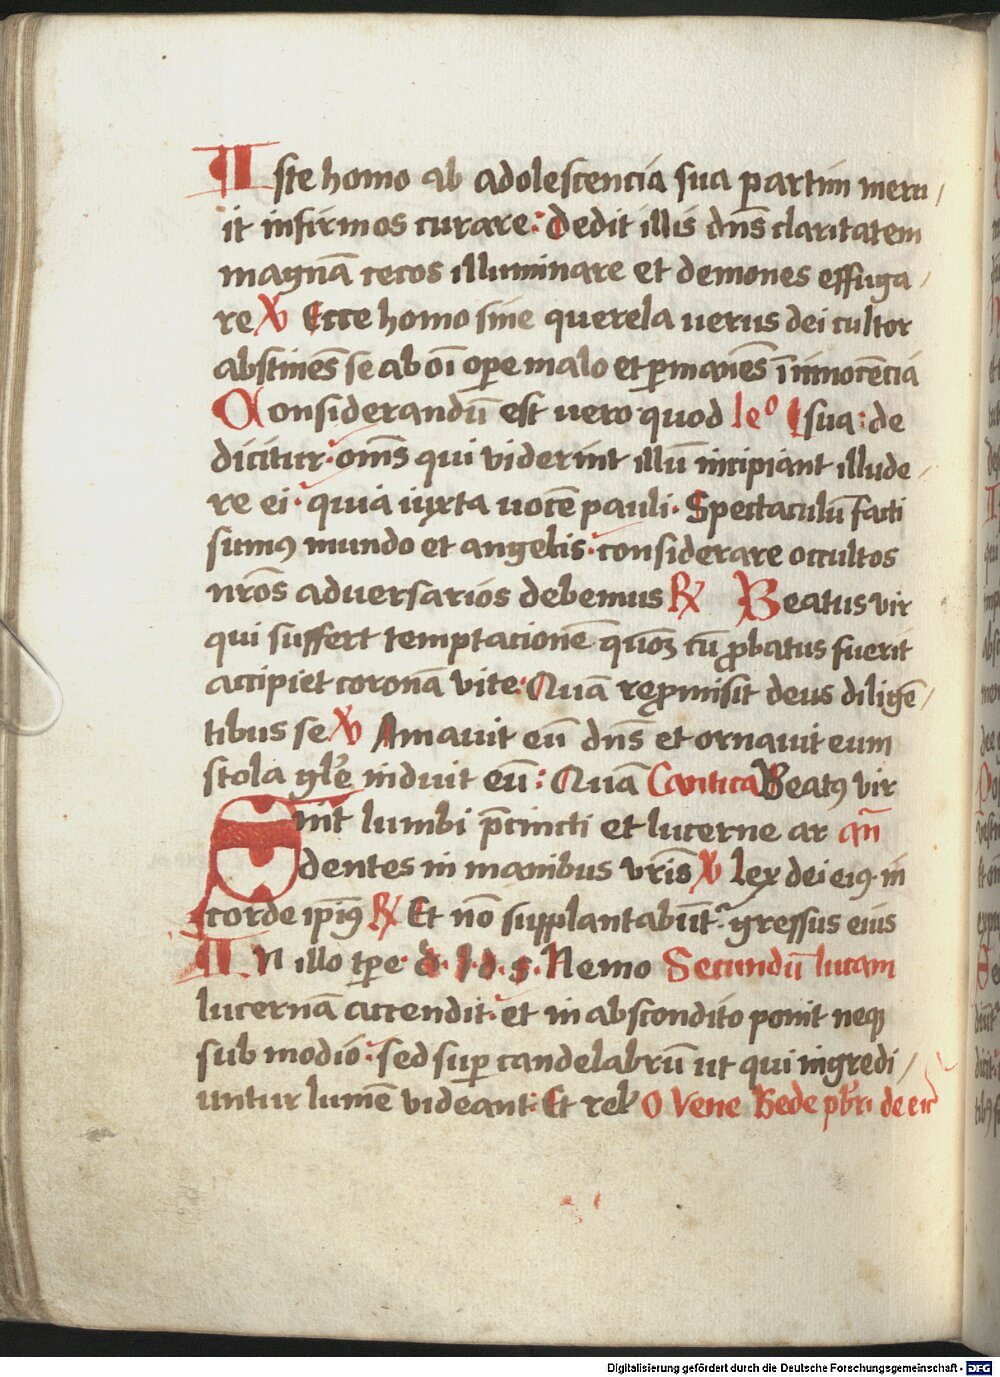 Iste homo ab adolescencia sua partim meru/
it infirmos curare: dedit illis dn̄s claritatem
magnā cecos illuminare et demones effuga/
re ℣ Ecce homo sine querela uerus dei cultor
abstinēs se ab oī oꝑe malo et ꝑmanēs ī innocēcia
Considerandū est uero quod leᵒ sua: de
dicitur: om̄s qui viderint illū incipiant illude/
re ei· quia iuxta uocē pauli· Spectaculū facti
sumꝰ mundo et angelis: considerare occultos
nr̄os adversarios debemus ℟ Beatus vir
qui suffert temptacionē quoꝫ cū ꝓbatus fuerit
accipiet coronā vite: Quā reꝓmisit deus diligē/
tibus se ℣ Amauit eū dn̄s et ornauit eum
stola gl̄e induit eū: Quā Cantica Beatꝰ vir
Sint lumbi p̄cincti et lucerne ar an̄
dentes in manibus vr̄is ℣ lex dei eiꝰ in
corde ip̄iꝰ ℟ Et nō supplantabūt᷑ gressus eius
In illo tꝑe· d· J· d· s· Nemo Secundū lucam
lucernā accendit: et in abscondito ponit neqꝫ
sub modio: sed suꝑ candelabrū ut qui ingredi/
untur lumē videant: Et rel̄ O Vene Bede pb̄ri de eu
Digitalisierung gefördert durch die Deutsche Forschungsgemeinschaft - DFG